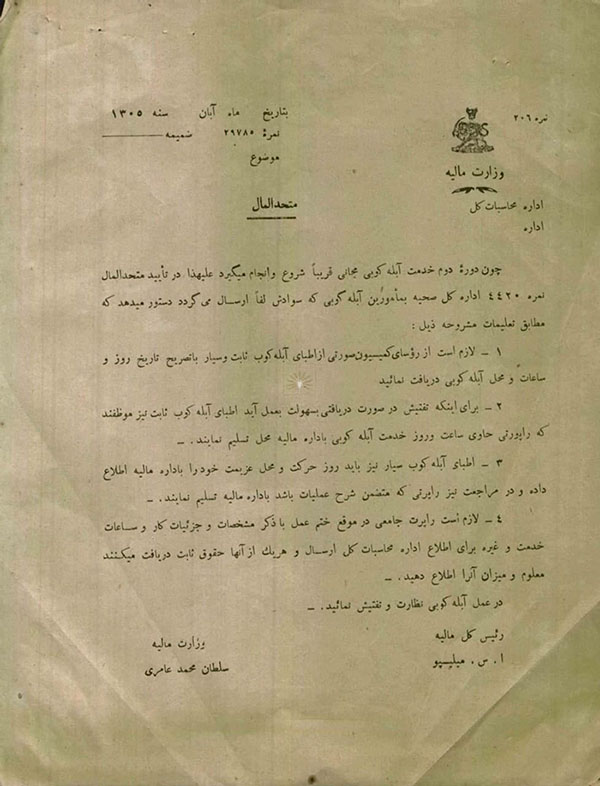 نمره ۲۰۶
وزارت مالیه
اداره محاسبات کل
اداره
بتاریخ ماه آبان سنه ۱۳۰۵
نمرهٔ ۲۹۷۸۵ ضمیمه
موضوع
متحدالمال
چون دورهٔ دوم خدمت آبله کوبی مجانی قریباً شروع وانجام میگیرد علیهذا در تأیید متحدالمال
نمره ۴۴۲۰ اداره کل صحیه بمأمورین آبله کوبی که سوادش لفاً ارسـال می گردد دستور میدهد که
مطابق تعلیمات مشروحه ذیل :
۱ ـ لازم است از رؤسای کمیسیون صورتی از اطبای آبله کوب ثابت وسیار باتصریح تاریخ روز و
ساعات و محل آبله کوبی دریافت نمائید
۲ ـ برای اینکه تفتیش در صورت دریافتی بسهولت بعمل آید اطبای آبله کوب ثابت نیز موظفند
که راپورتی حاوی ساعت وروز خدمت آبله کوبی باداره مالیه محل تسلیم نمایند . ـ
۳ ـ اطبای آبله کوب سیار نیز باید روز حرکت و محل عزیمت خود را باداره مالیه اطلاع
داده و در مراجعت نیز راپرتی که متضمن شرح عملیات باشد باداره مالیه تسلیم نمایند . ـ
٤ ـ لازم است راپرت جامعی در موقع ختم عمل با ذکر مشخصات و جزئیات کار و ساعات
خدمت و غیره برای اطلاع اداره محاسبات کل ارسـال و هریك از آنها حقوق ثابت دریافت میکنند
معلوم و میزان آنرا اطلاع دهید . ـ
در عمل آبله کوبی نظارت و تفتیش نمائید . ـ
رئیس کل مالیه
ا . س . میلیسپو
وزارت مالیه
سلطان محمد عامری